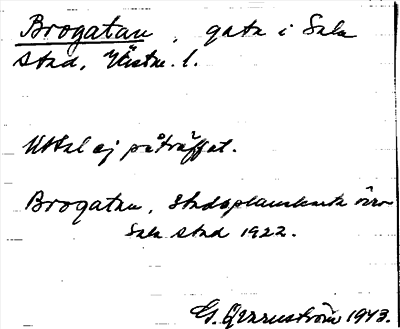 Brogatan, gata i Sala
stad, Västm. l.
Uttal ej påträffat.
Brogatan, stadsplanekarta över
Sala stad 1922.
G. 1943.